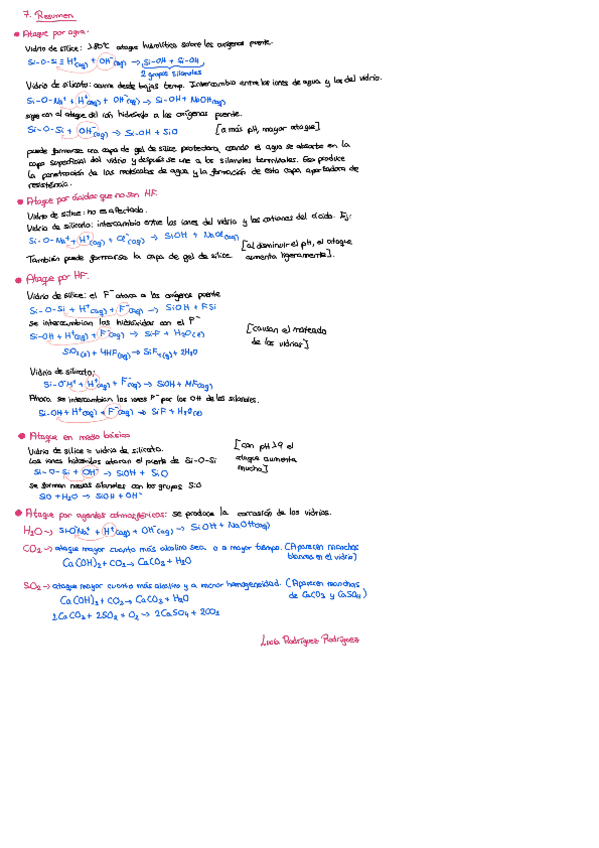 7. Resumen
• Ataque por agua.
Vidrio de sílice: >80°C ataque hidrolítico sobre los oxígenos puente.
Si-O-Si ≡ H⁺(aq) + OH⁻(aq) → Si-OH + Si-OH
2 grupos silanoles
Vidrio de silicato: ocurre desde bajas temp. Intercambio entre los iones de agua y los del vidrio.
Si-O-Na⁺ + H⁺(aq) + OH⁻(aq) → Si-OH + NaOH(aq)
sigue con el ataque del ión hidroxilo a los oxígenos puente.
Si-O-Si + OH⁻(aq) → Si-OH + SiO [a más pH, mayor ataque]
puede formarse una capa de gel de sílice protectora, cuando el agua se absorbe en la
capa superficial del vidrio y después se une a los silanoles terminales. Eso produce
la penetración de las moléculas de agua y la formación de esta capa, aportadora de
resistencia.
• Ataque por ácidos que no son HF.
Vidrio de sílice: no es afectado.
Vidrio de silicato: intercambio entre los iones del vidrio y los cationes del ácido. Ej:
Si-O-Na⁺ + H⁺(aq) + Cl⁻(aq) → SiOH + NaCl(aq)
[al disminuir el pH, el ataque
También puede formarse la capa de gel de sílice aumenta ligeramente].
• Ataque por HF.
Vidrio de sílice: el F⁻ ataca a los oxígenos puente
Si-O-Si + H⁺(aq) + F⁻(aq) → SiOH + FSi
se intercambian los hidróxidos con el F⁻
Si-OH + H⁺(aq) + F⁻(aq) → SiF + H₂O(l) [causan el mateado
SiO₂(s) + 4HF(aq) → SiF₄(g) + 2H₂O de los vidrios]
Vidrio de silicato:
Si-O⁻M⁺ + H⁺(aq) + F⁻(aq) → SiOH + MF(aq)
Ahora se intercambian los iones F⁻ por los OH de los silanoles.
Si-OH + H⁺(aq) + F⁻(aq) → SiF + H₂O(l)
• Ataque en medio básico
Vidrio de sílice = vidrio de silicato. [con pH>9 el
Los iones hidroxilos atacan el puente de Si-O-Si ataque aumenta
Si-O-Si + OH⁻ → SiOH + SiO mucho]
se forman nuevos silanoles con los grupos SiO
SiO + H₂O → SiOH + OH⁻
• Ataque por agentes atmosféricos: se produce la corrosión de los vidrios.
H₂O → Si-O⁻Na⁺ + H⁺(aq) + OH⁻(aq) → SiOH + NaOH(aq)
CO₂ → ataque mayor cuanto más alcalino sea. o a mayor tiempo. (Aparecen manchas
blancas en el vidrio)
Ca(OH)₂ + CO₂ → CaCO₃ + H₂O
SO₂ → ataque mayor cuanto más alcalino y a menor homogeneidad. (Aparecen manchas
de CaCO₃ y CaSO₄)
Ca(OH)₂ + CO₂ → CaCO₃ + H₂O
2CaCO₃ + 2SO₂ + O₂ → 2CaSO₄ + 2CO₂
Lucía Rodríguez Rodríguez